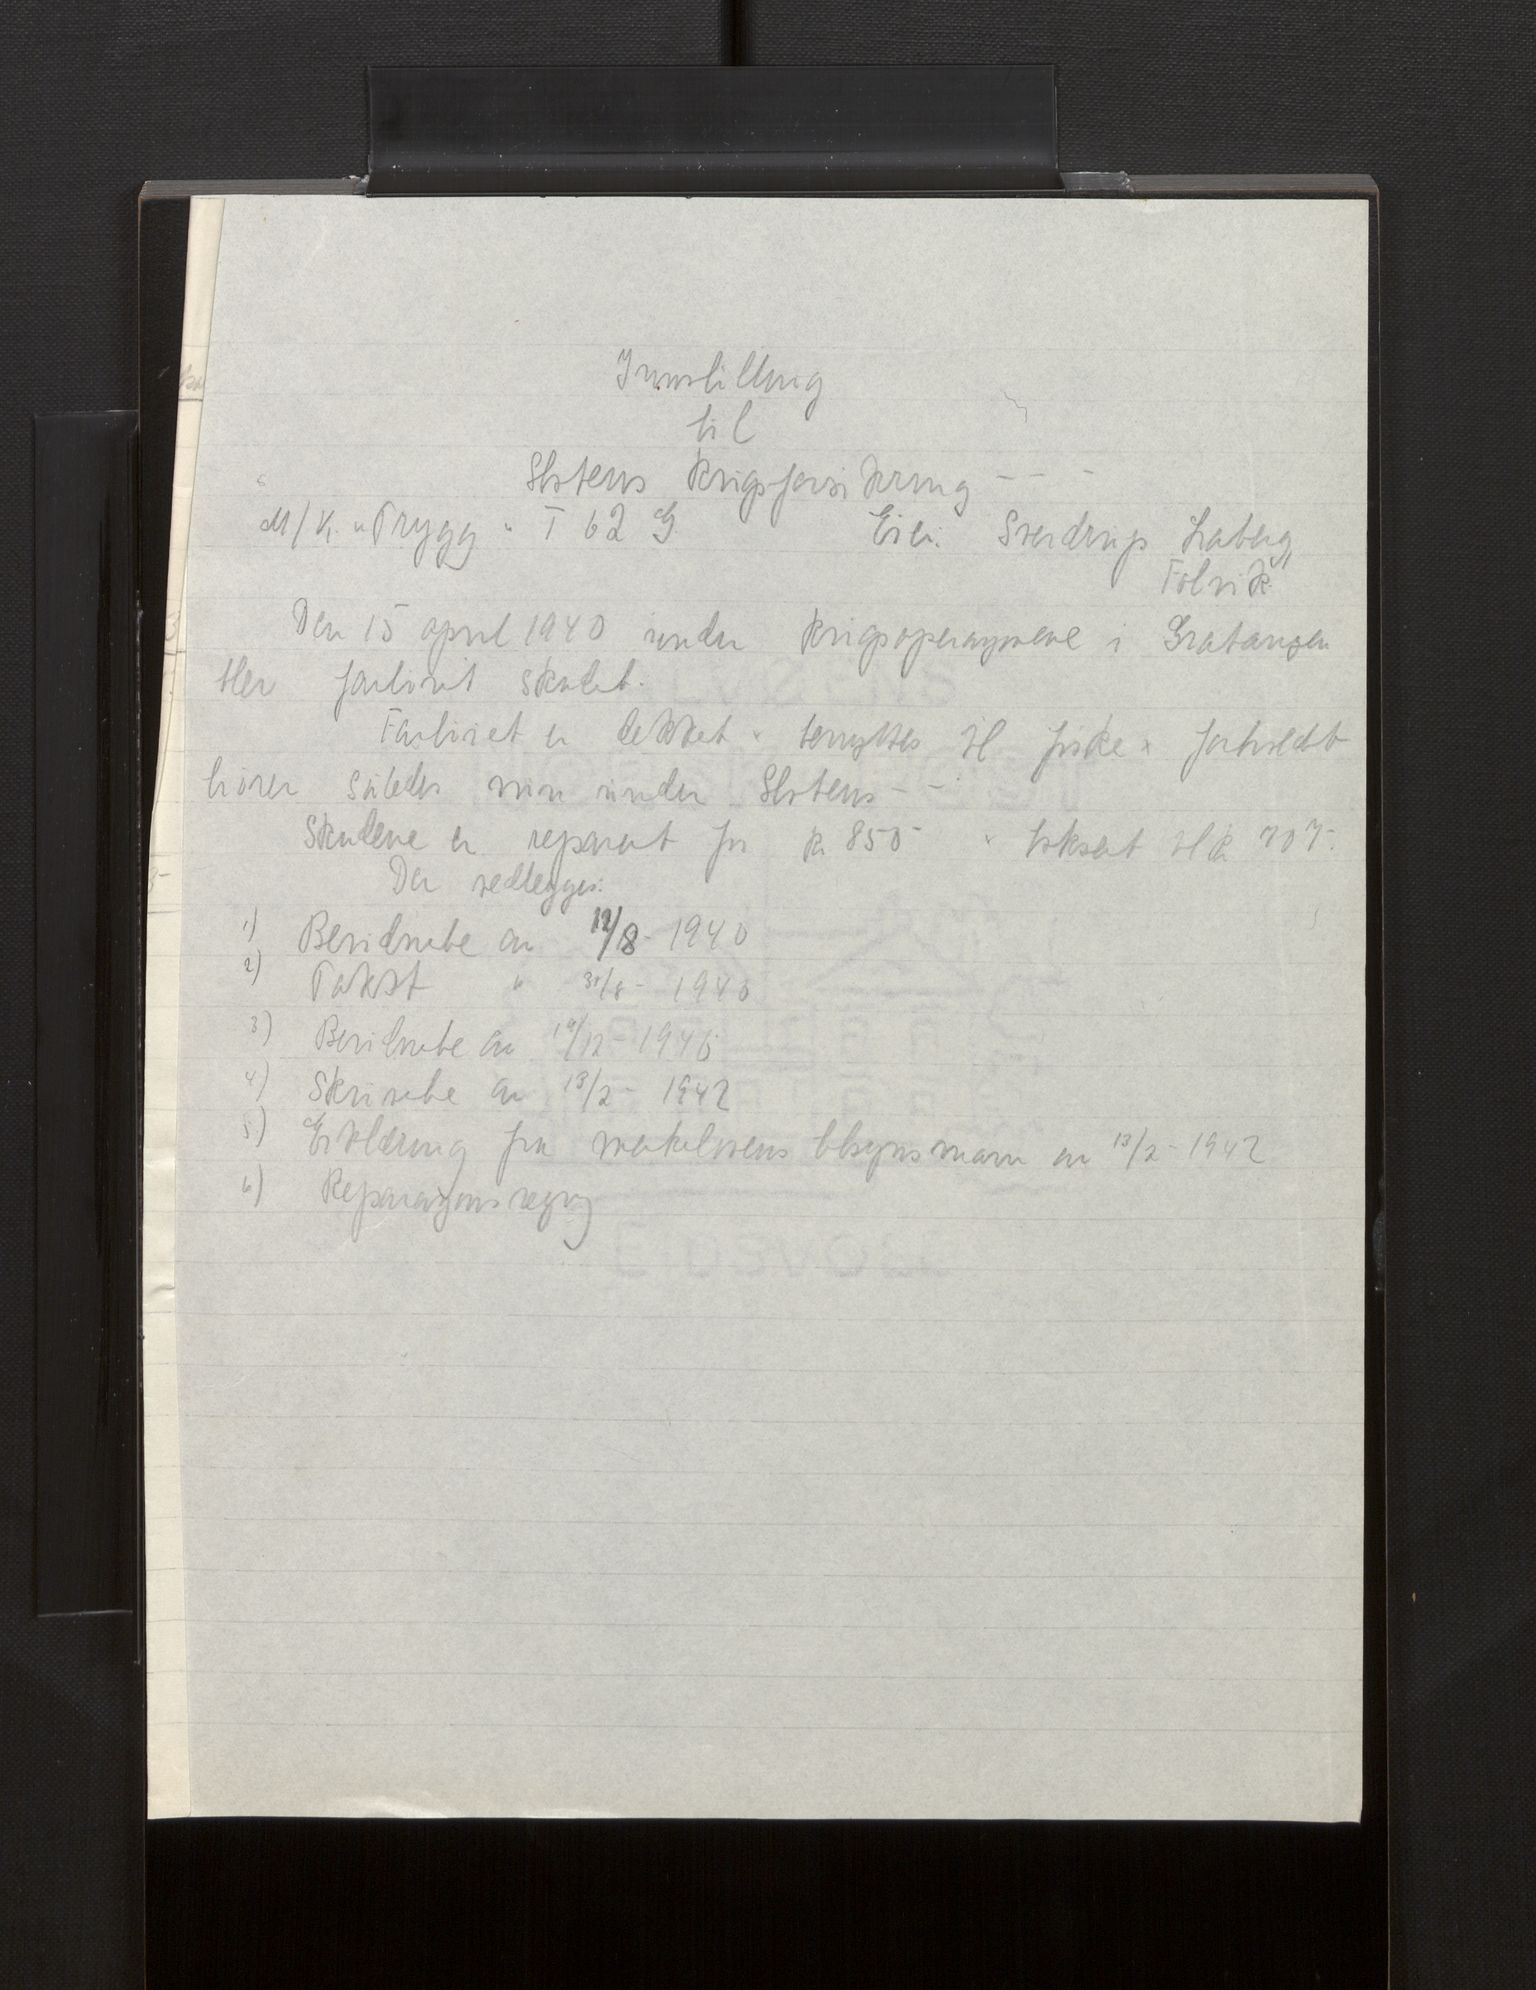 Innstilling
til
Statens krigsforsikring - - -
M/K. "Trygg" T 62 G Eier: Sverdrup Laberg,
Folvik.
Den 15 april 1940 under krigsoperasjonene i Gratangen
blev fartöiet skadet.
Fartöiet er dekket & benyttes til fiske & forholdet
hörer således inn under Statens - -
Skadene er reparert for kr 850- & taksert til kr 707-.
Der vedlegges:
1) Bekidnelse av 12/8- 1940
2) Takst " 31/8- 1940
3) av 19/12- 1940
4) Skrivelse av 13/2- 1942
5) Erklæring fra tilsynsmann av 13/2- 1942
6) Reparasjonsregng